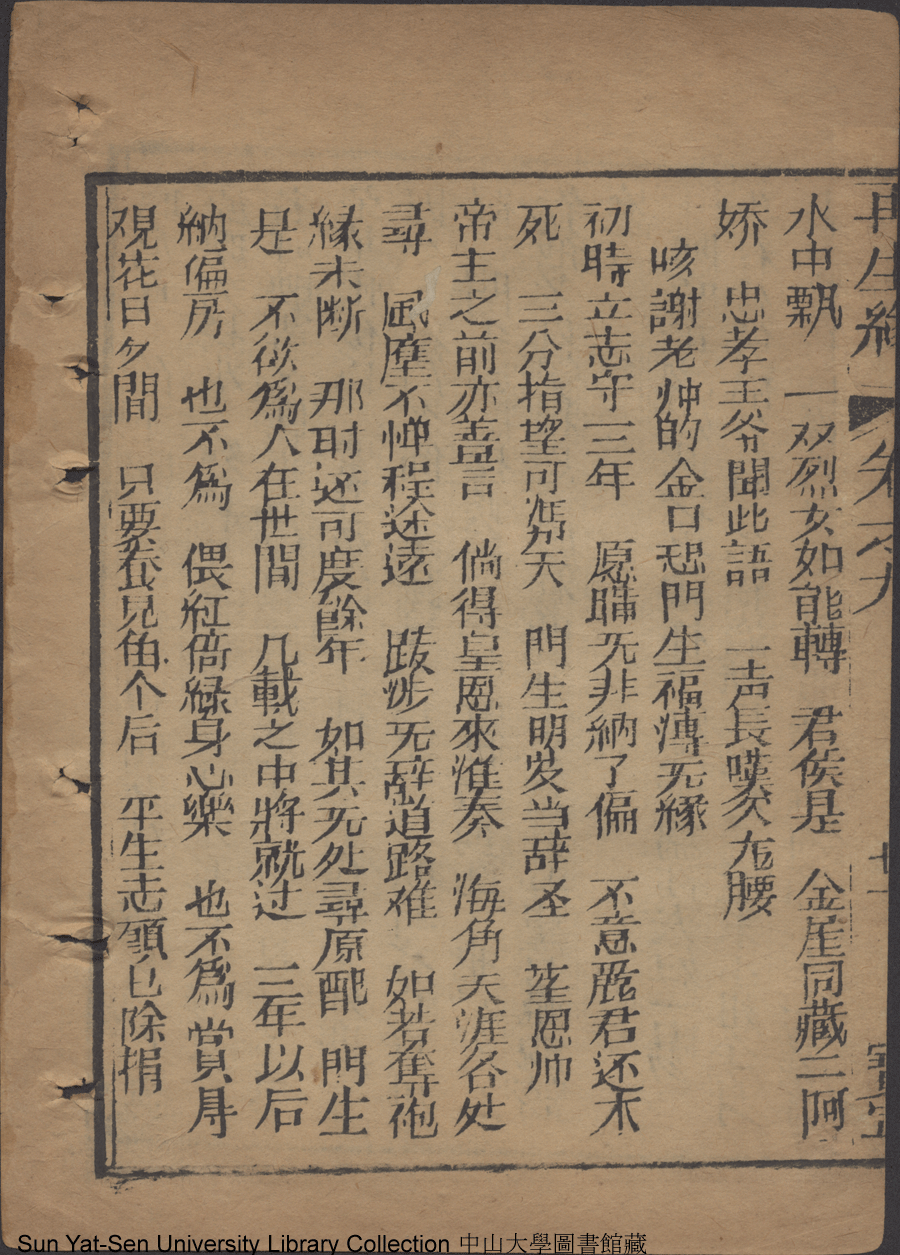 再生緣 卷六九 廿一 寳寧
水中飄 一双烈女如能轉 君侯是 金屋同藏二阿
娇 忠孝王爷聞此語 一声長嘆欠龙腰
咳謝老帅的金口恐門生福薄无緣
初時立志守三年 愿購无非納了偏 不意麗君还未
死 三分指望可慂天 門生明发当辞圣 荃恩帅
帝主之前亦善言 倘得皇恩來准奏 海角天涯各处
尋 風塵不惮程途遠 跋涉无辞道路难 如若奪袍
緣未断 那时还可度餘年 如其无处尋原配 門生
是 不欲爲人在世間 几載之中將就过 三年以后
納偏房 也不爲 偎紅倍緑身心樂 也不爲 賞月
观花日夕間 只要養児留个后 平生志願已除捐
Sun Yat-Sen University Library Collection 中山大學圖書館藏